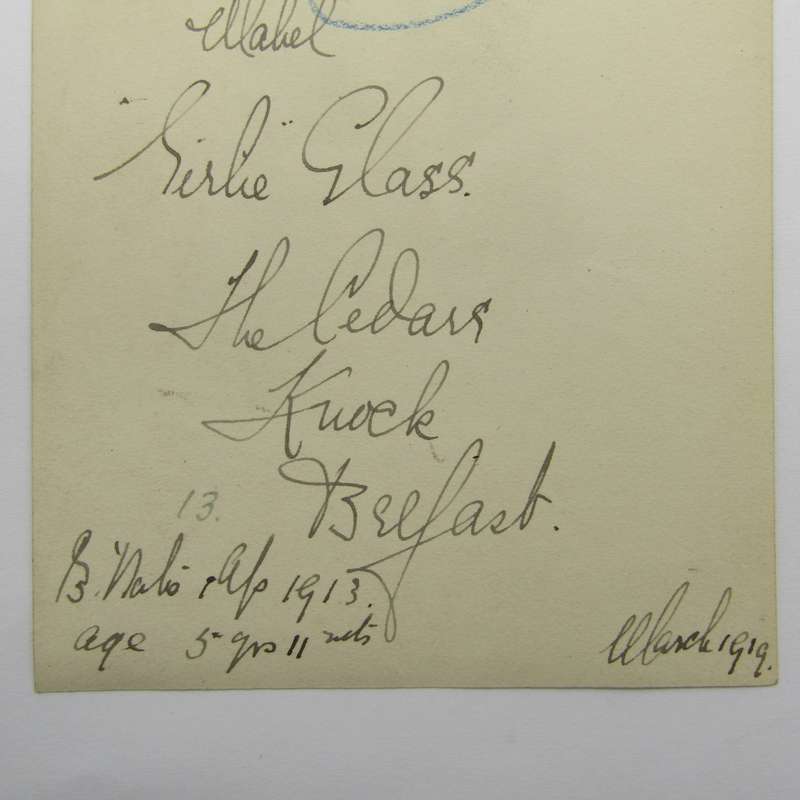 Mabel
"Girlie" Glass.
The Cedars
Knock
Belfast.
13.
B. 1913.
age 5 yrs 11 mts
March 1919.